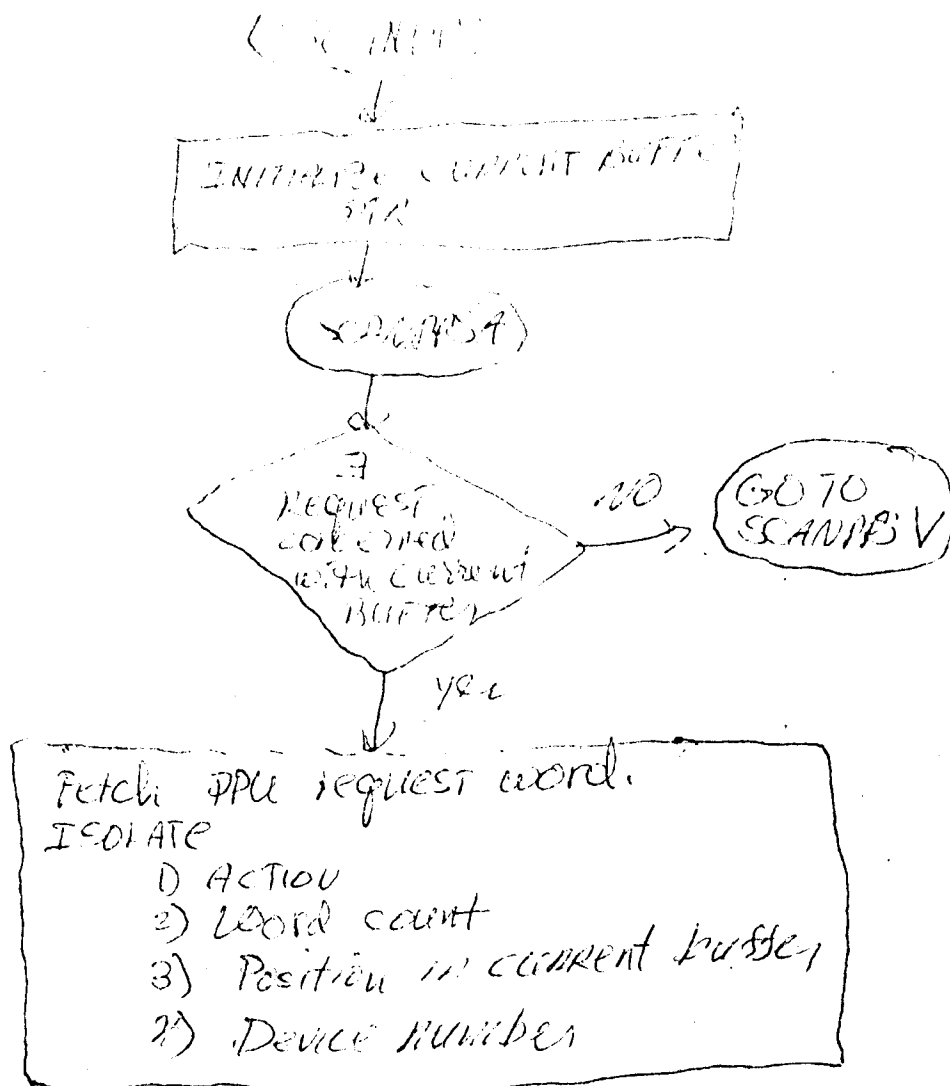 INITIALIZE CURRENT BUFFE
PTR
REQUEST
concerned
with current
BUFFER
NO
GO TO
SCANPBS V
yes
Fetch PPU request word.
ISOLATE
1) ACTION
2) Word count
3) Position in current buffer
4) Device number